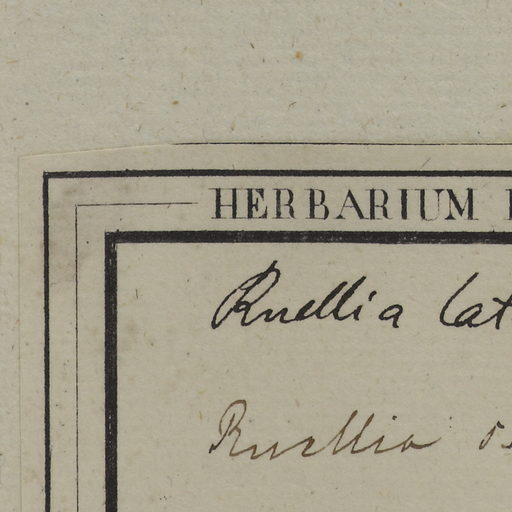 HERBARIUM
Ruellia lat
Ruellia